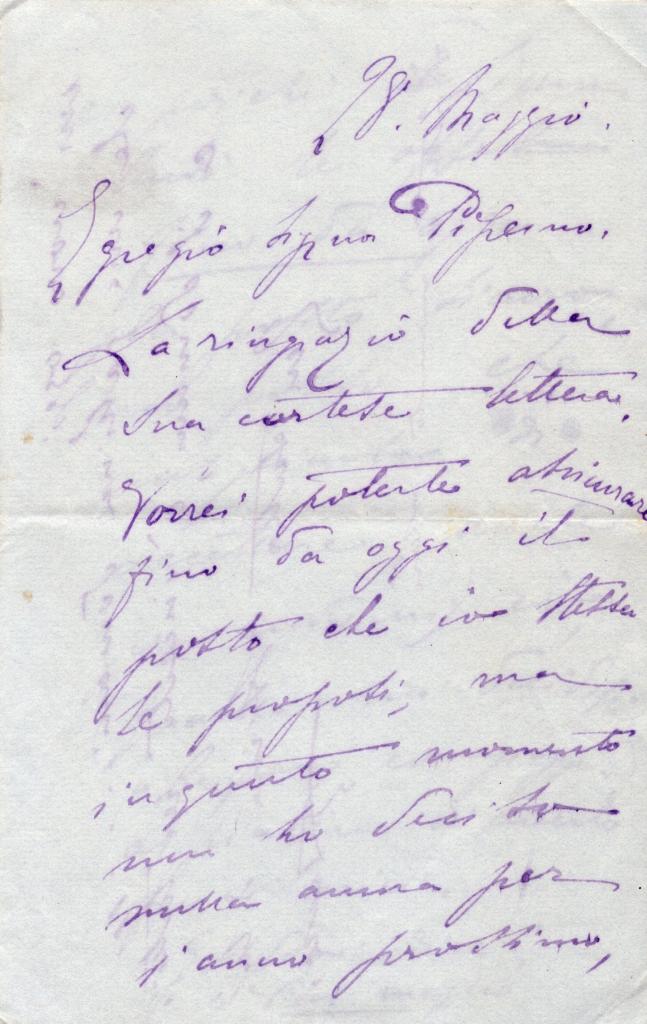 28. Maggio.
Egregio Signor Piperno.
La ringrazio della
Sua cortese lettera.
Vorrei poterle assicurare
fino da oggi il
posto che io stessa
le proposi, ma
in questo momento
non ho deciso
nulla ancora per
l'anno prossimo,